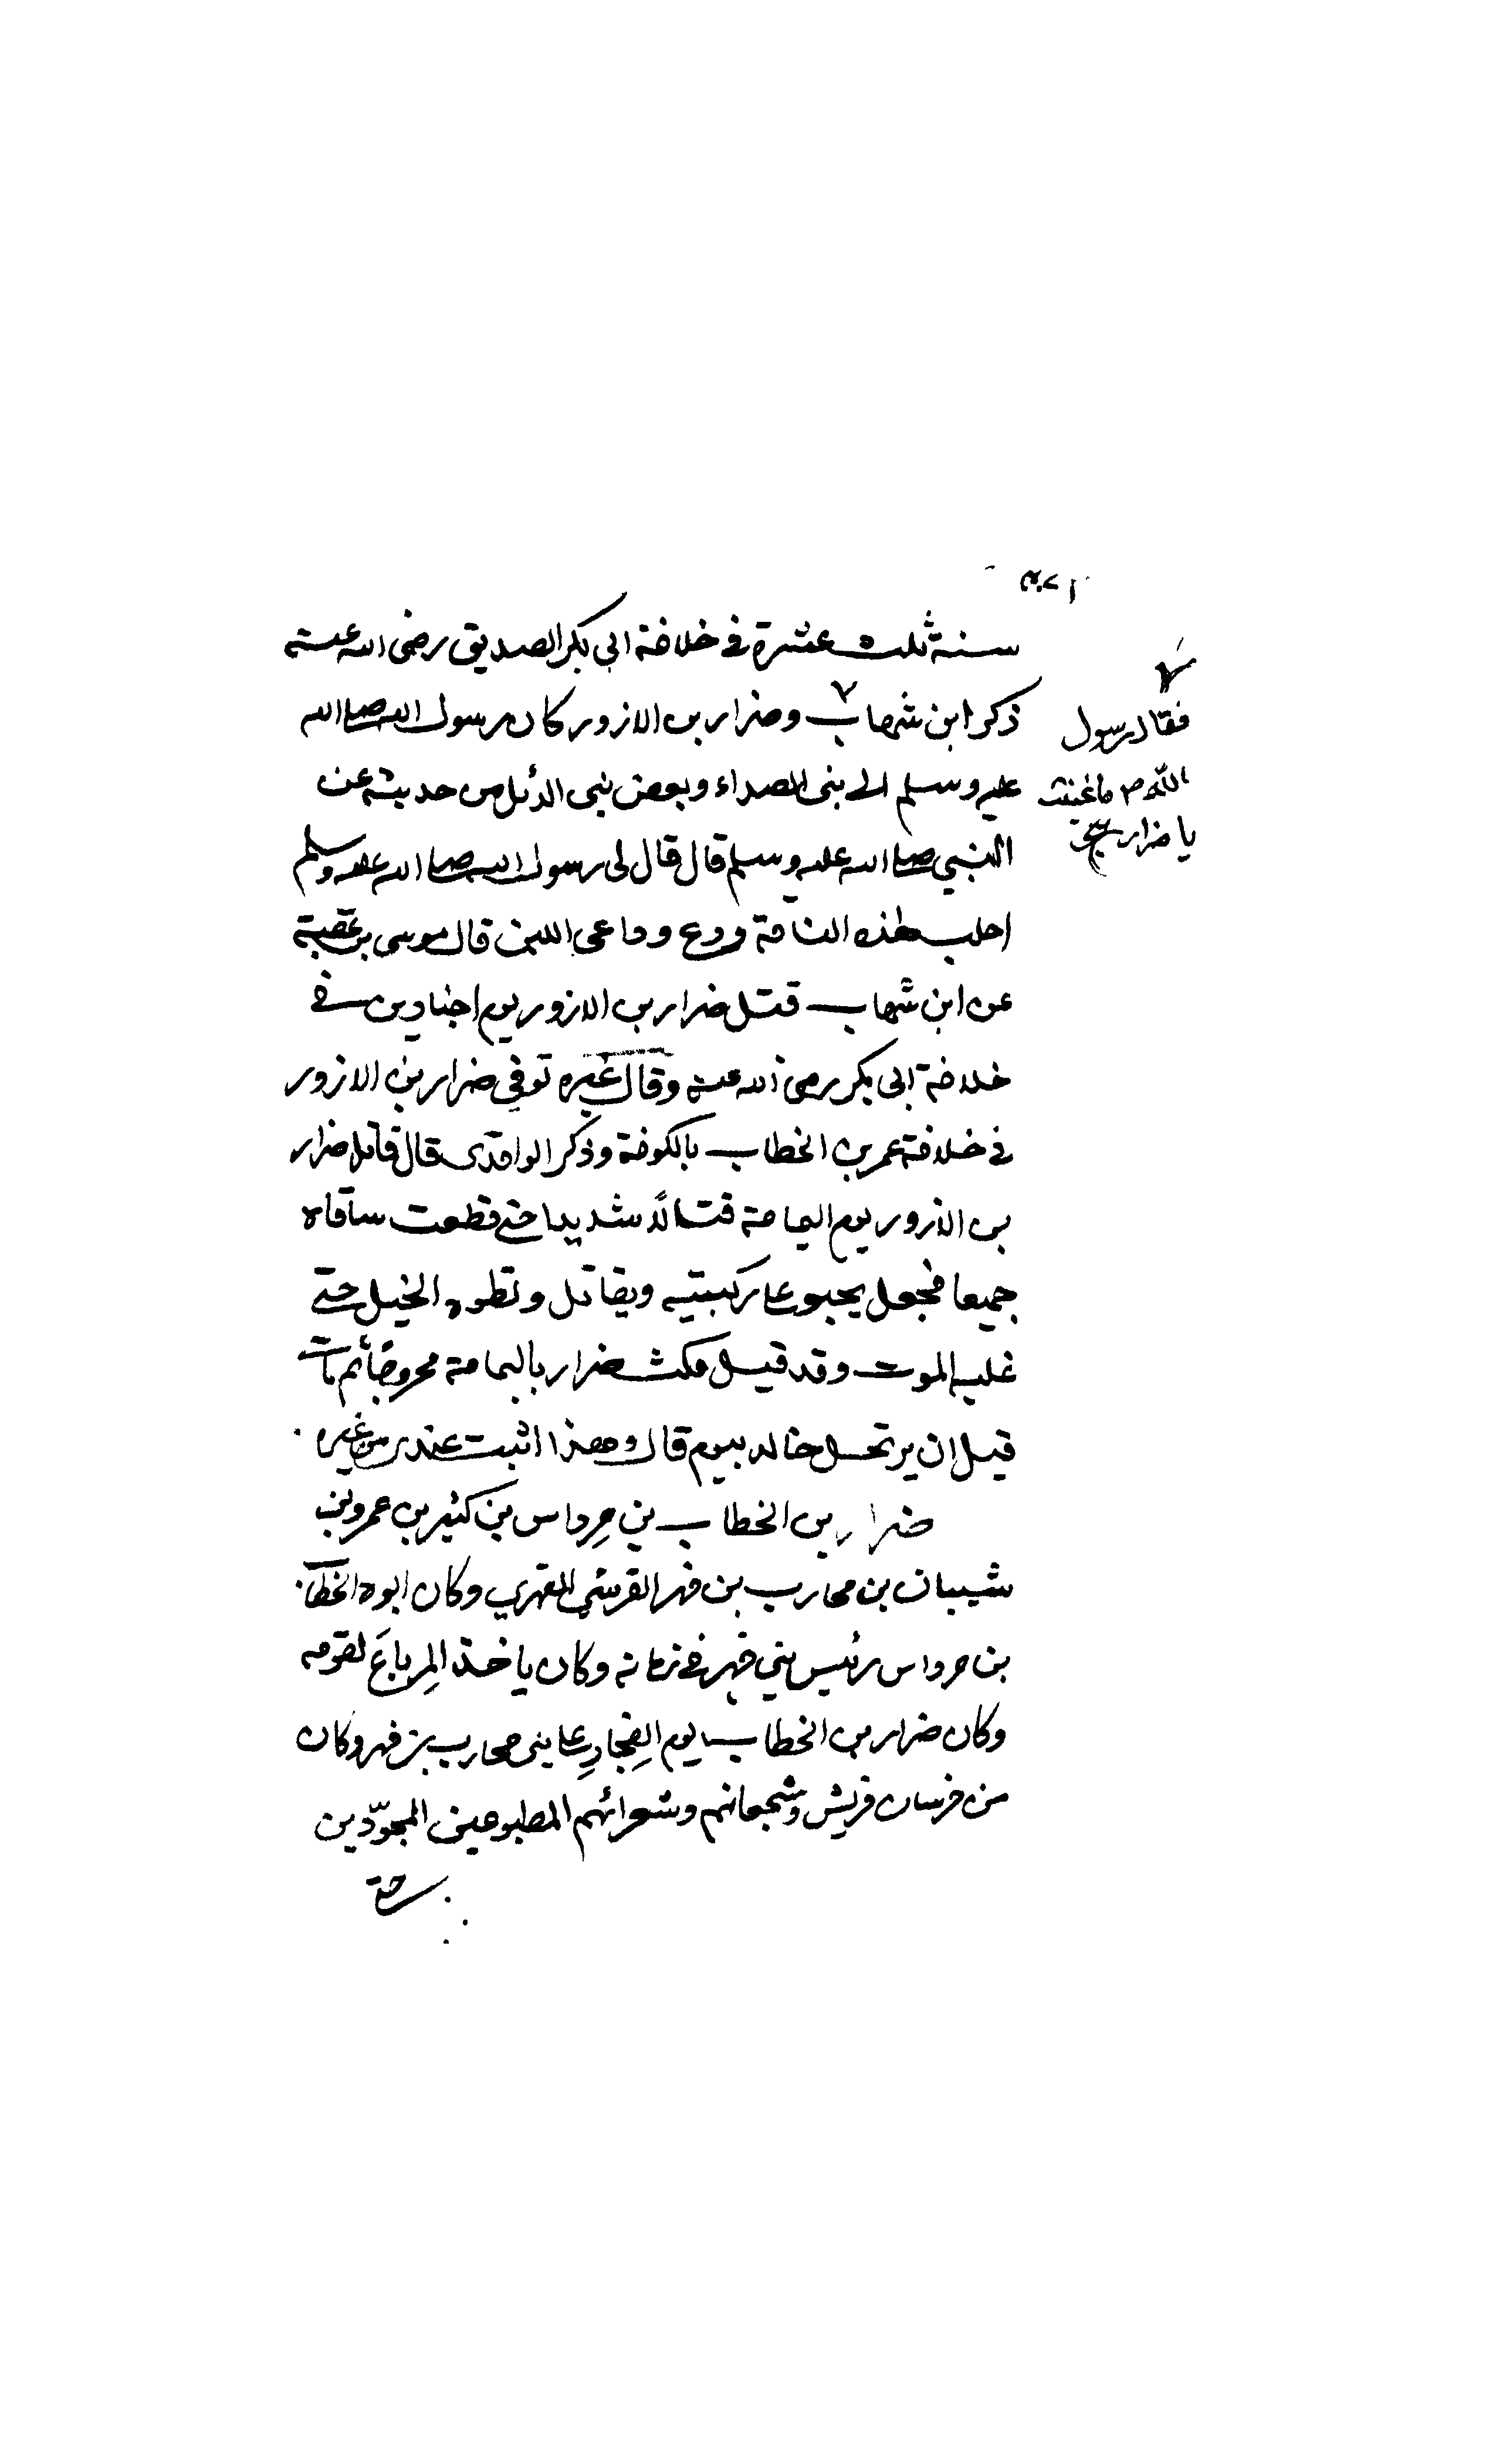 سنة ثلث عشرة في خلافة ابي بكر الصديق رضى الله عنه
ذكر ابن شهاب وضرار بن الازور كان رسول الله صلى الله
عليه وسلم الى بنى الصداء وبعض بنى الدئل من حديثه عن
النبي صلى الله عليه وسلم قال قال لى رسول الله صلى الله عليه وسلم
احلب هذه الناقة ودع وداعى اللبن قال موسى بن عقبة
عن ابن شهاب قتل ضرار بن الازور يوم اجنادين في
خلافة ابى بكر رضى الله عنه وقال غيره توفي ضرار بن الازور
في خلافة عمر بن الخطاب بالكوفة وذكر الواقدى قال قاتل ضرار
بن الازور يوم اليمامة قتالاً شديدا حتى قطعت ساقاه
جميعا فجعل يحبو على ركبتيه ويقاتل وتطوه الخيل حتى
غلبه الموت وقد قيل مكث ضرار باليمامة مجروحا ثم مات
قبل ان يرتحل خالد بيوم قال وهذا اثبت عندى من غيره
ضرار بن الخطاب بن مِرداس بن كثير بن عمرو بن
شيبان بن محارب بن فهر القرشي الفهري وكان ابوه الخطاب
بن مرداس رئيس بني فهر في زمانه وكان ياخذ المِرباعَ لقومه
وكان ضرار بن الخطاب يوم الفِجارِ على بنى محارب بن فهر وكان
من فرسان قريش وشجعانهم وشعرائهم المطبوعين المجوّدين
حتى
فقال رسول
الله ص ما غبنت
يا ضرار صح